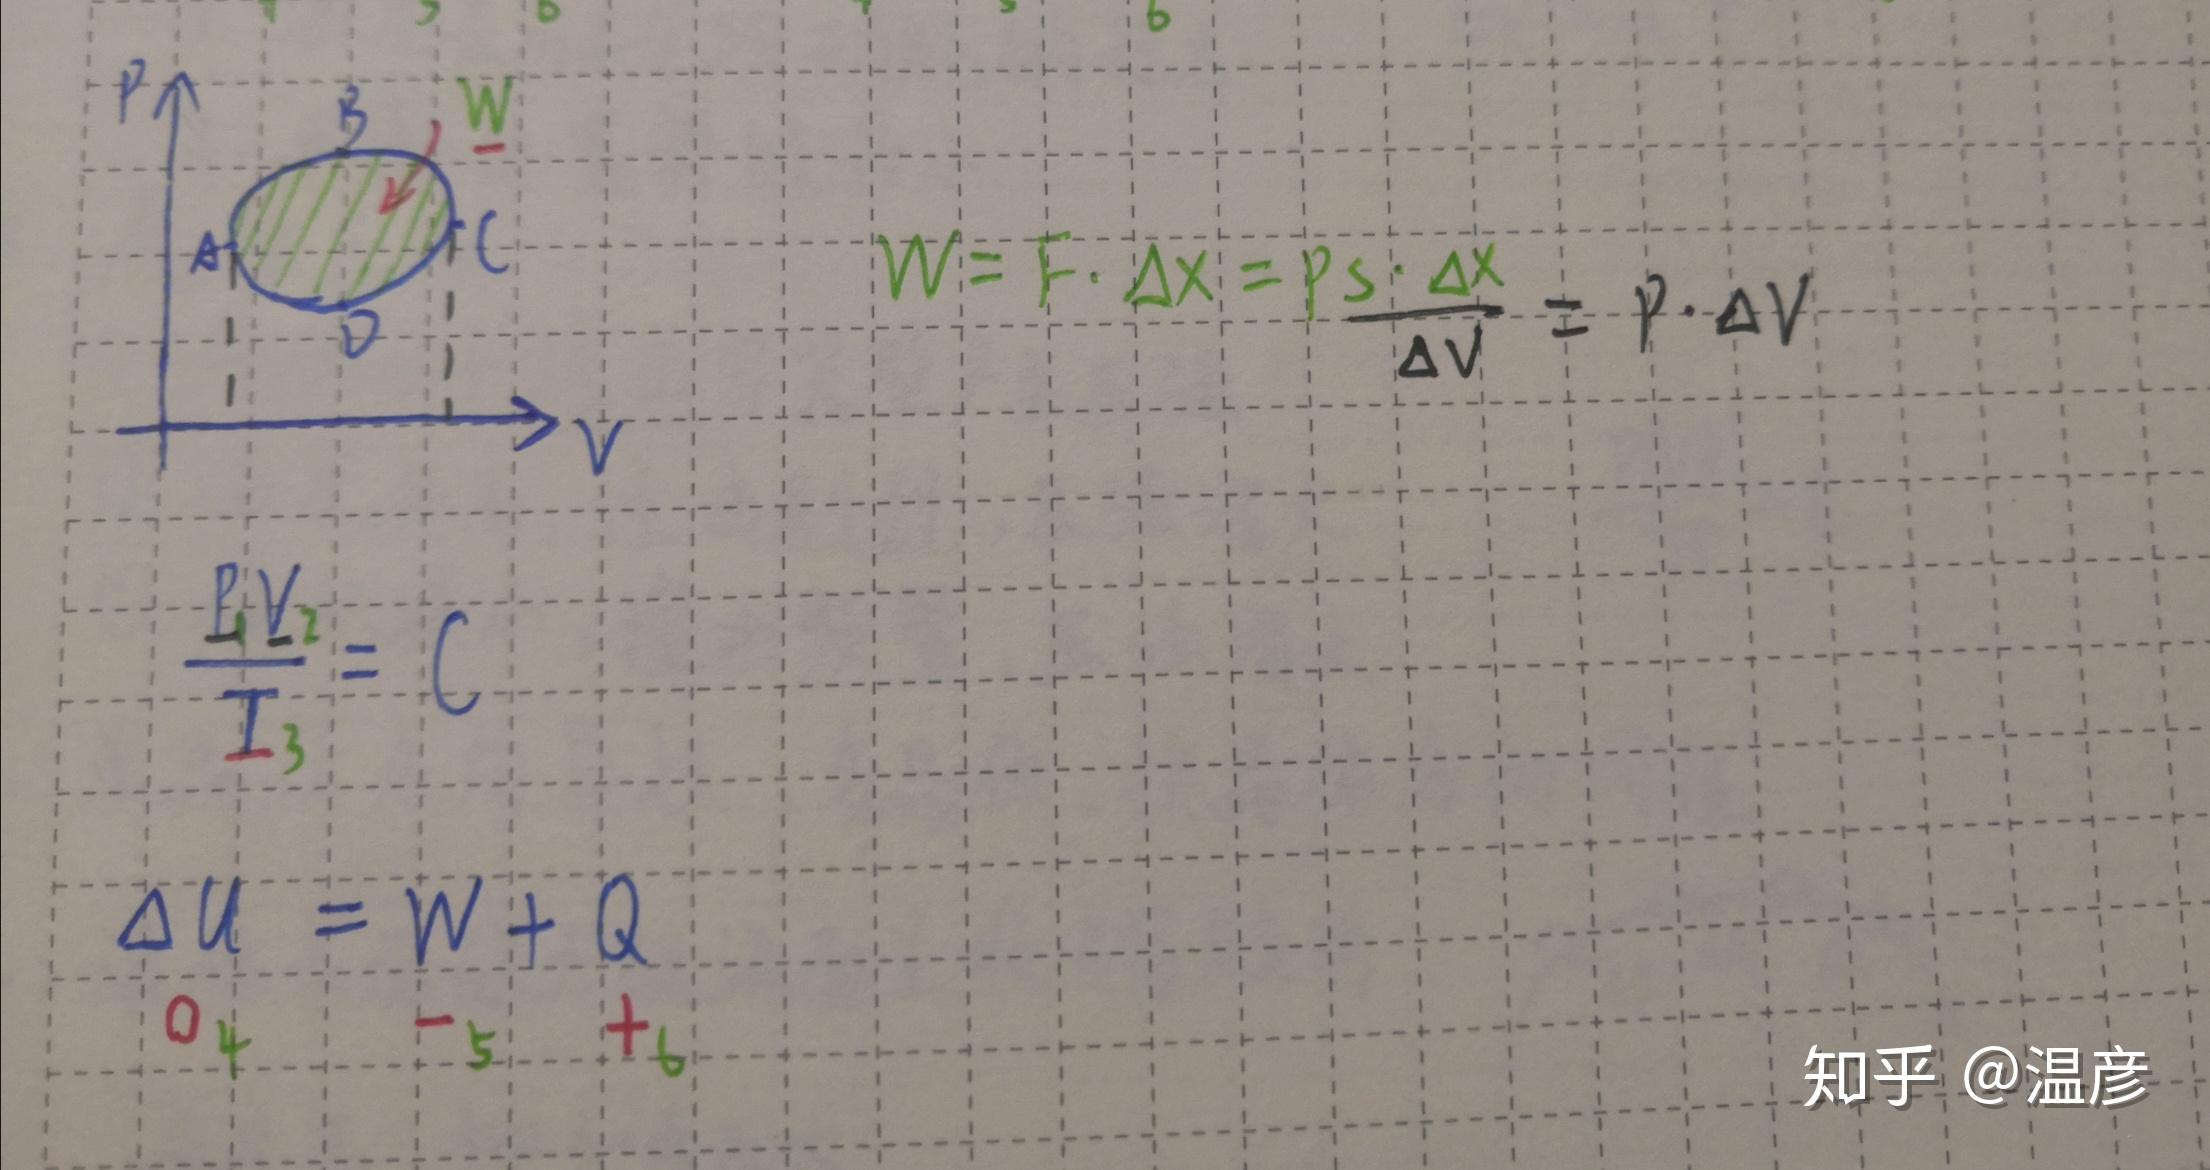 4 5 6 4 5 6
P
B
W
A
C
D
V
W = F · Δx = PS · Δx = P · ΔV
ΔV
P1V2
T3
= C
ΔU = W + Q
0 4 - 5 + 6
知乎 @温彦